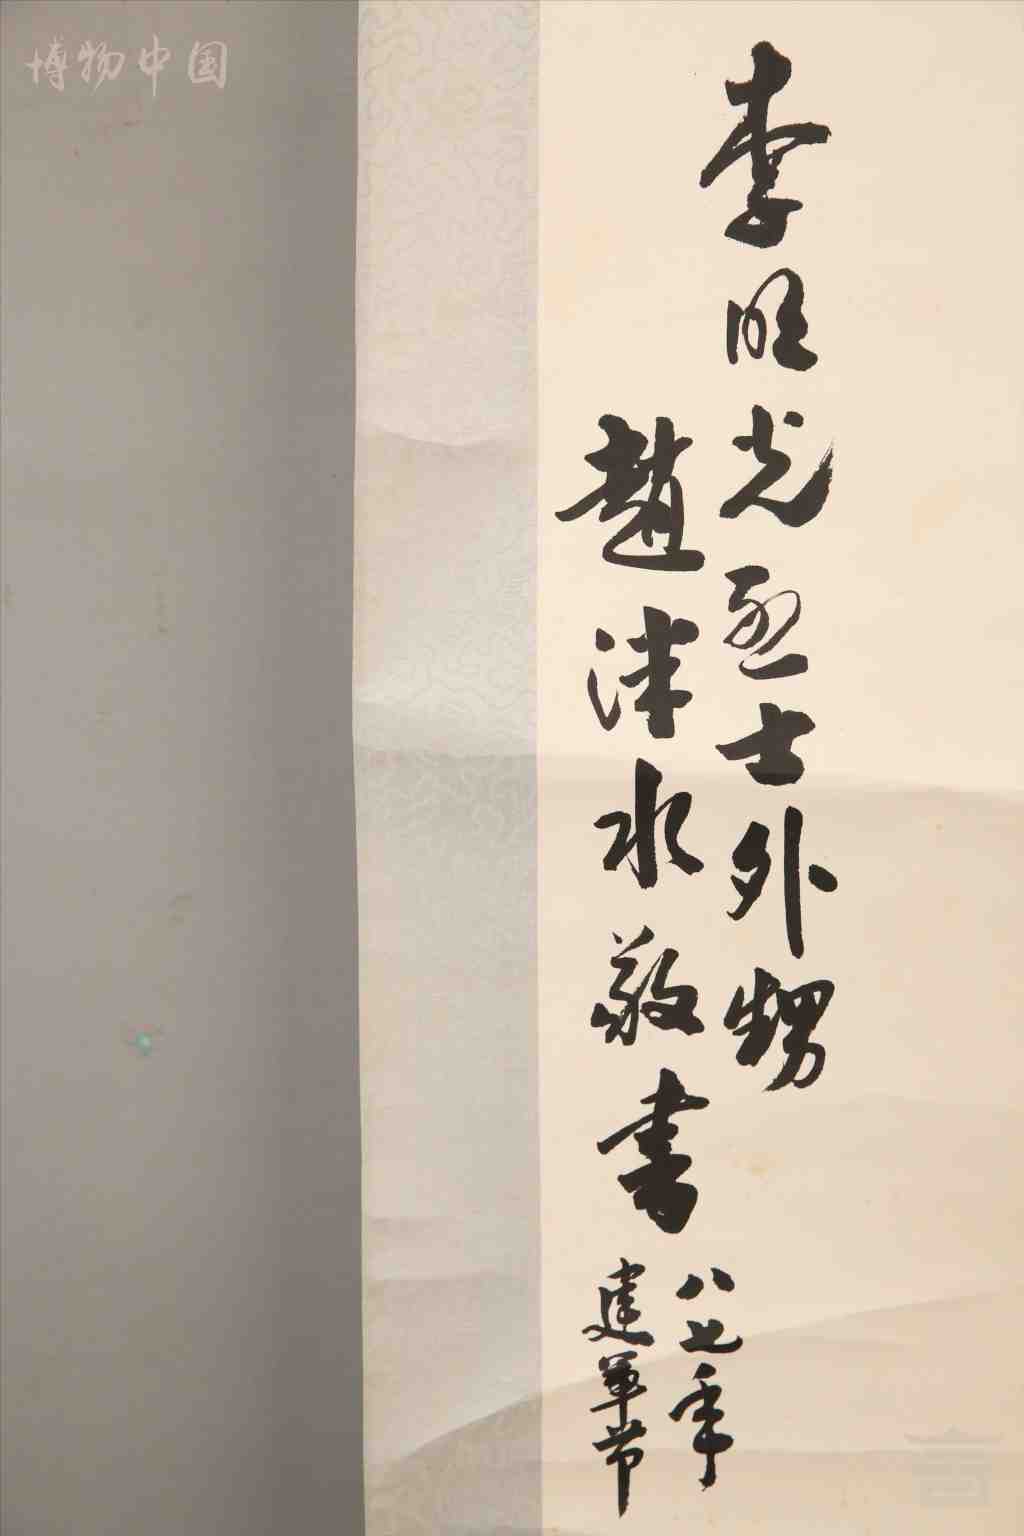 博物中国
李旺光烈士外甥
趙津水敬书
八七年
建军节